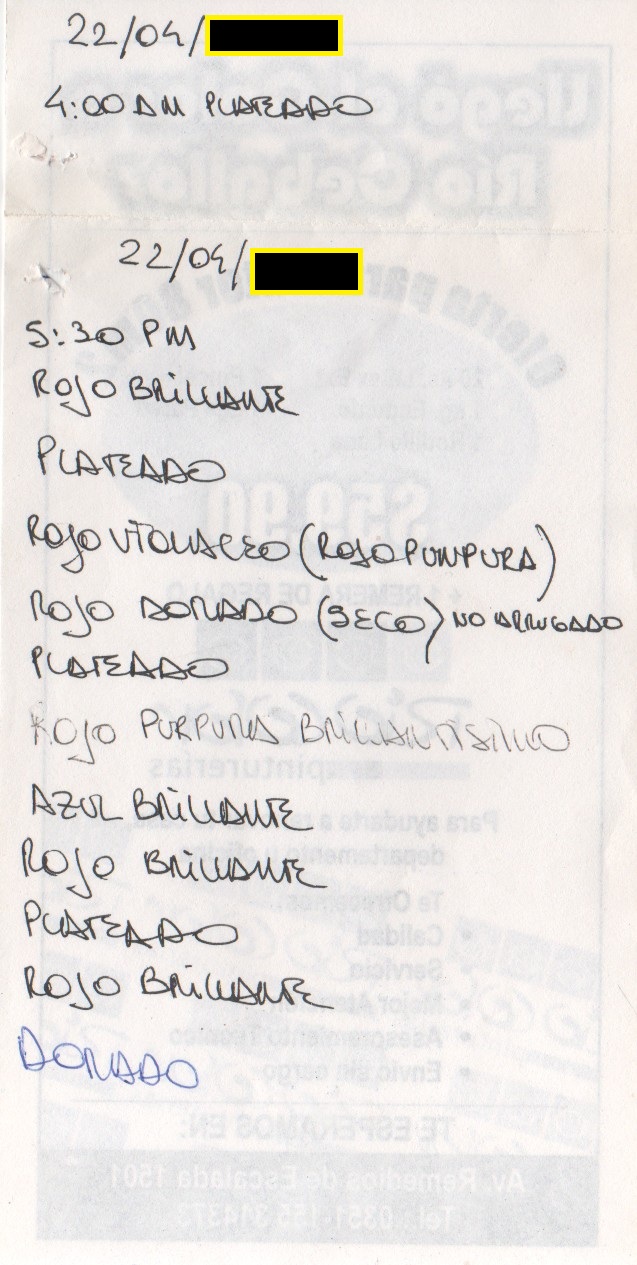 22/04/
4:00 AM PLATEADO
22/04/
5:30 PM
ROJO BRILLANTE
PLATEADO
ROJO VIOLACEO (ROJO PURPURA)
ROJO DORADO (SECO) NO ARRUGADO
PLATEADO
ROJO PURPURA BRILLANTISIMO
AZUL BRILLANTE
ROJO BRILLANTE
PLATEADO
ROJO BRILLANTE
DORADO